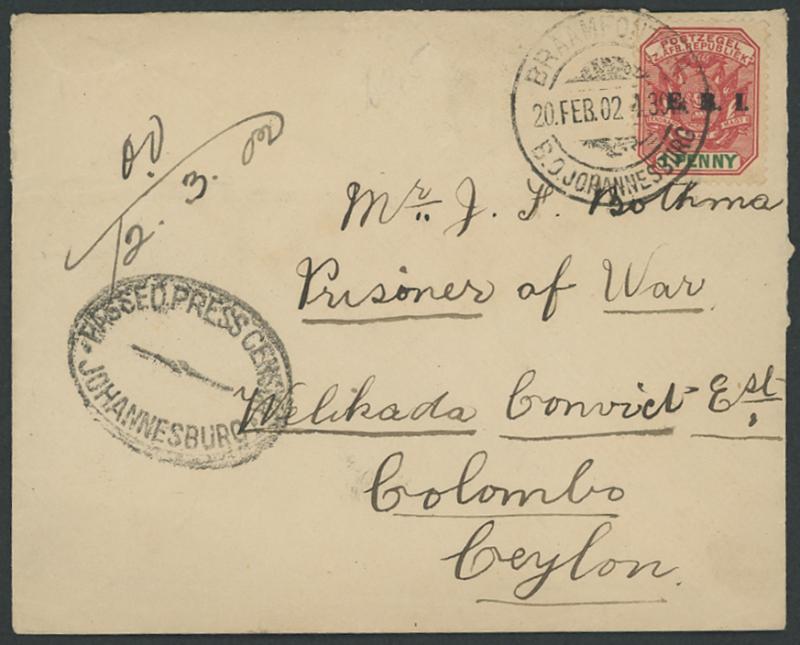 POSTZEGEL
Z. AFR. REPUBLIEK
E. R. I.
1 PENNY
BRAAMFONTEIN
20. FEB. 02
B.O. JOHANNESBURG
12. 3. 02
Mr. J. S. Bothma
Prisoner of War
Welikada Convict Est.
Colombo
Ceylon.
PASSED PRESS CENSOR
JOHANNESBURG